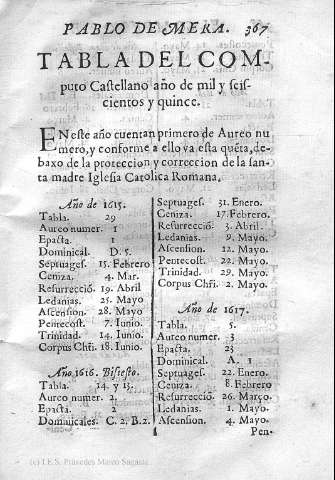 PABLO DE MERA. 367
TABLA DEL COM-
puto Castellano año de mil y seis-
cientos y quince.
EN este año cuentan primero de Aureo nu
mero, y conforme a ello va esta quẽta, de-
baxo de la proteccion y correccion de la san-
ta madre Iglesia Catolica Romana.
Año de 1615.
Tabla. 29
Aureo numer. 1
Epacta. 1
Dominical. D. 5.
Septuages. 15. Febrero
Ceniza. 4. Mar.
Resurrecció. 19. Abril
Ledanias. 25. Mayo
Ascension. 28. Mayo
Pentecost. 7. Iunio.
Trinidad. 14. Iunio.
Corpus Chfi. 18. Iunio.
Año 1616. Bisiesto.
Tabla. 14. y 13.
Aureo numer. 2.
Epacta. 2
Dominicales. C. 2. B. 2.
Septuages. 31. Enero.
Ceniza. 17. Febrero.
Resurrecció. 3. Abril.
Ledanias. 9. Mayo.
Ascension. 12. Mayo.
Pentecost. 22. Mayo.
Trinidad. 29. Mayo.
Corpus Chfi. 2. Mayo.
Año de 1617.
Tabla. 5.
Aureo numer. 3
Epacta. 23
Dominical. A. 1
Septuages. 22. Enero.
Ceniza. 8. Febrero
Resurrecció. 26. Março.
Ledanias. 1. Mayo.
Ascension. 4. Mayo.
Pen-
(c) I.E.S. Práxedes Mateo Sagasta